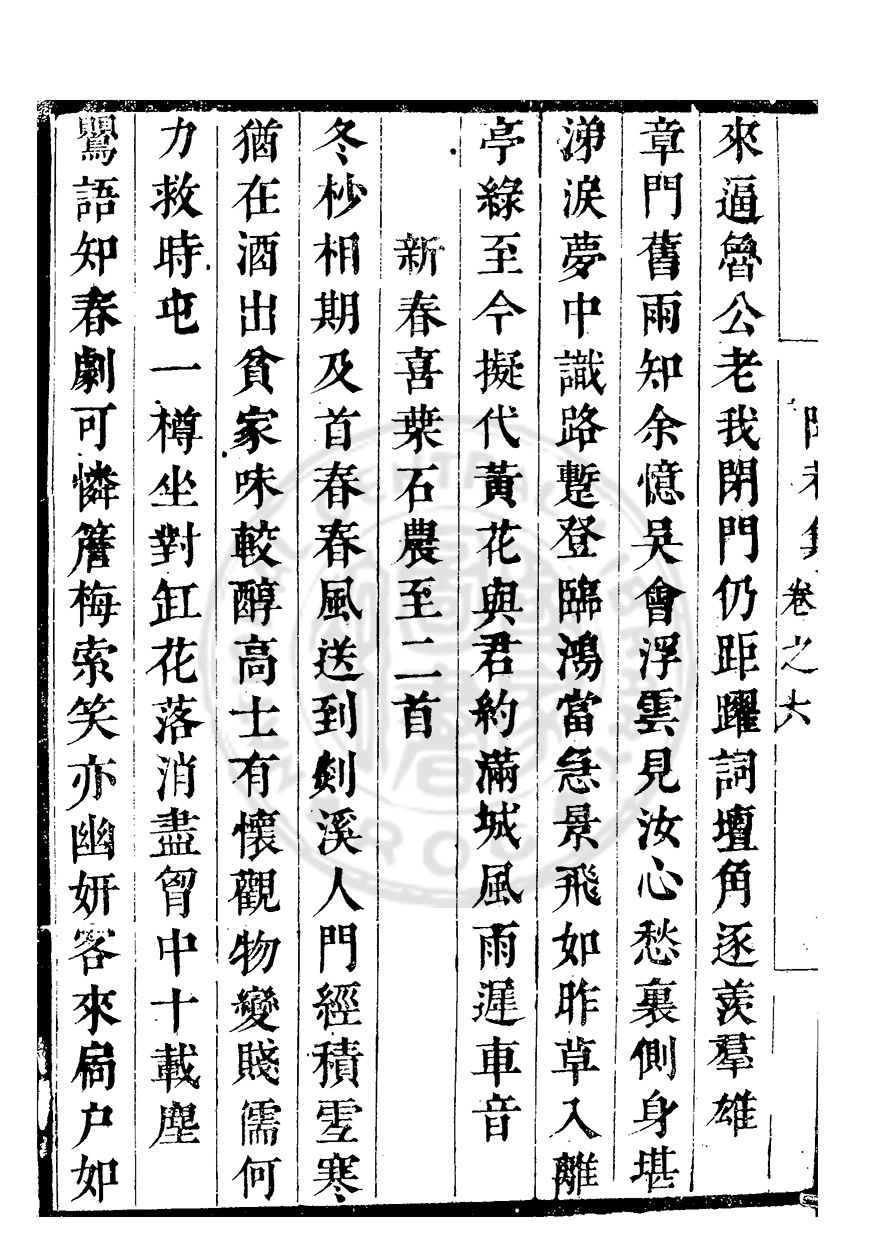 卷之六
來逼魯公老我閉門仍距躍詞壇角逐羨羣雄
章門舊雨知余憶吳會浮雲見汝心愁裏側身堪
涕淚夢中識路蹔登臨鴻當急景飛如昨草入離
亭綠至今擬代黃花與君約滿城風雨遲車音
新春喜葉石農至二首
冬杪相期及首春春風送到剡溪人門經積雪寒
猶在酒出貧家味較醇高士有懷觀物變賤儒何
力救時屯一樽坐對缸花落消盡胷中十載塵
鸎語知春劇可憐簷梅索笑亦幽妍客來扃户如